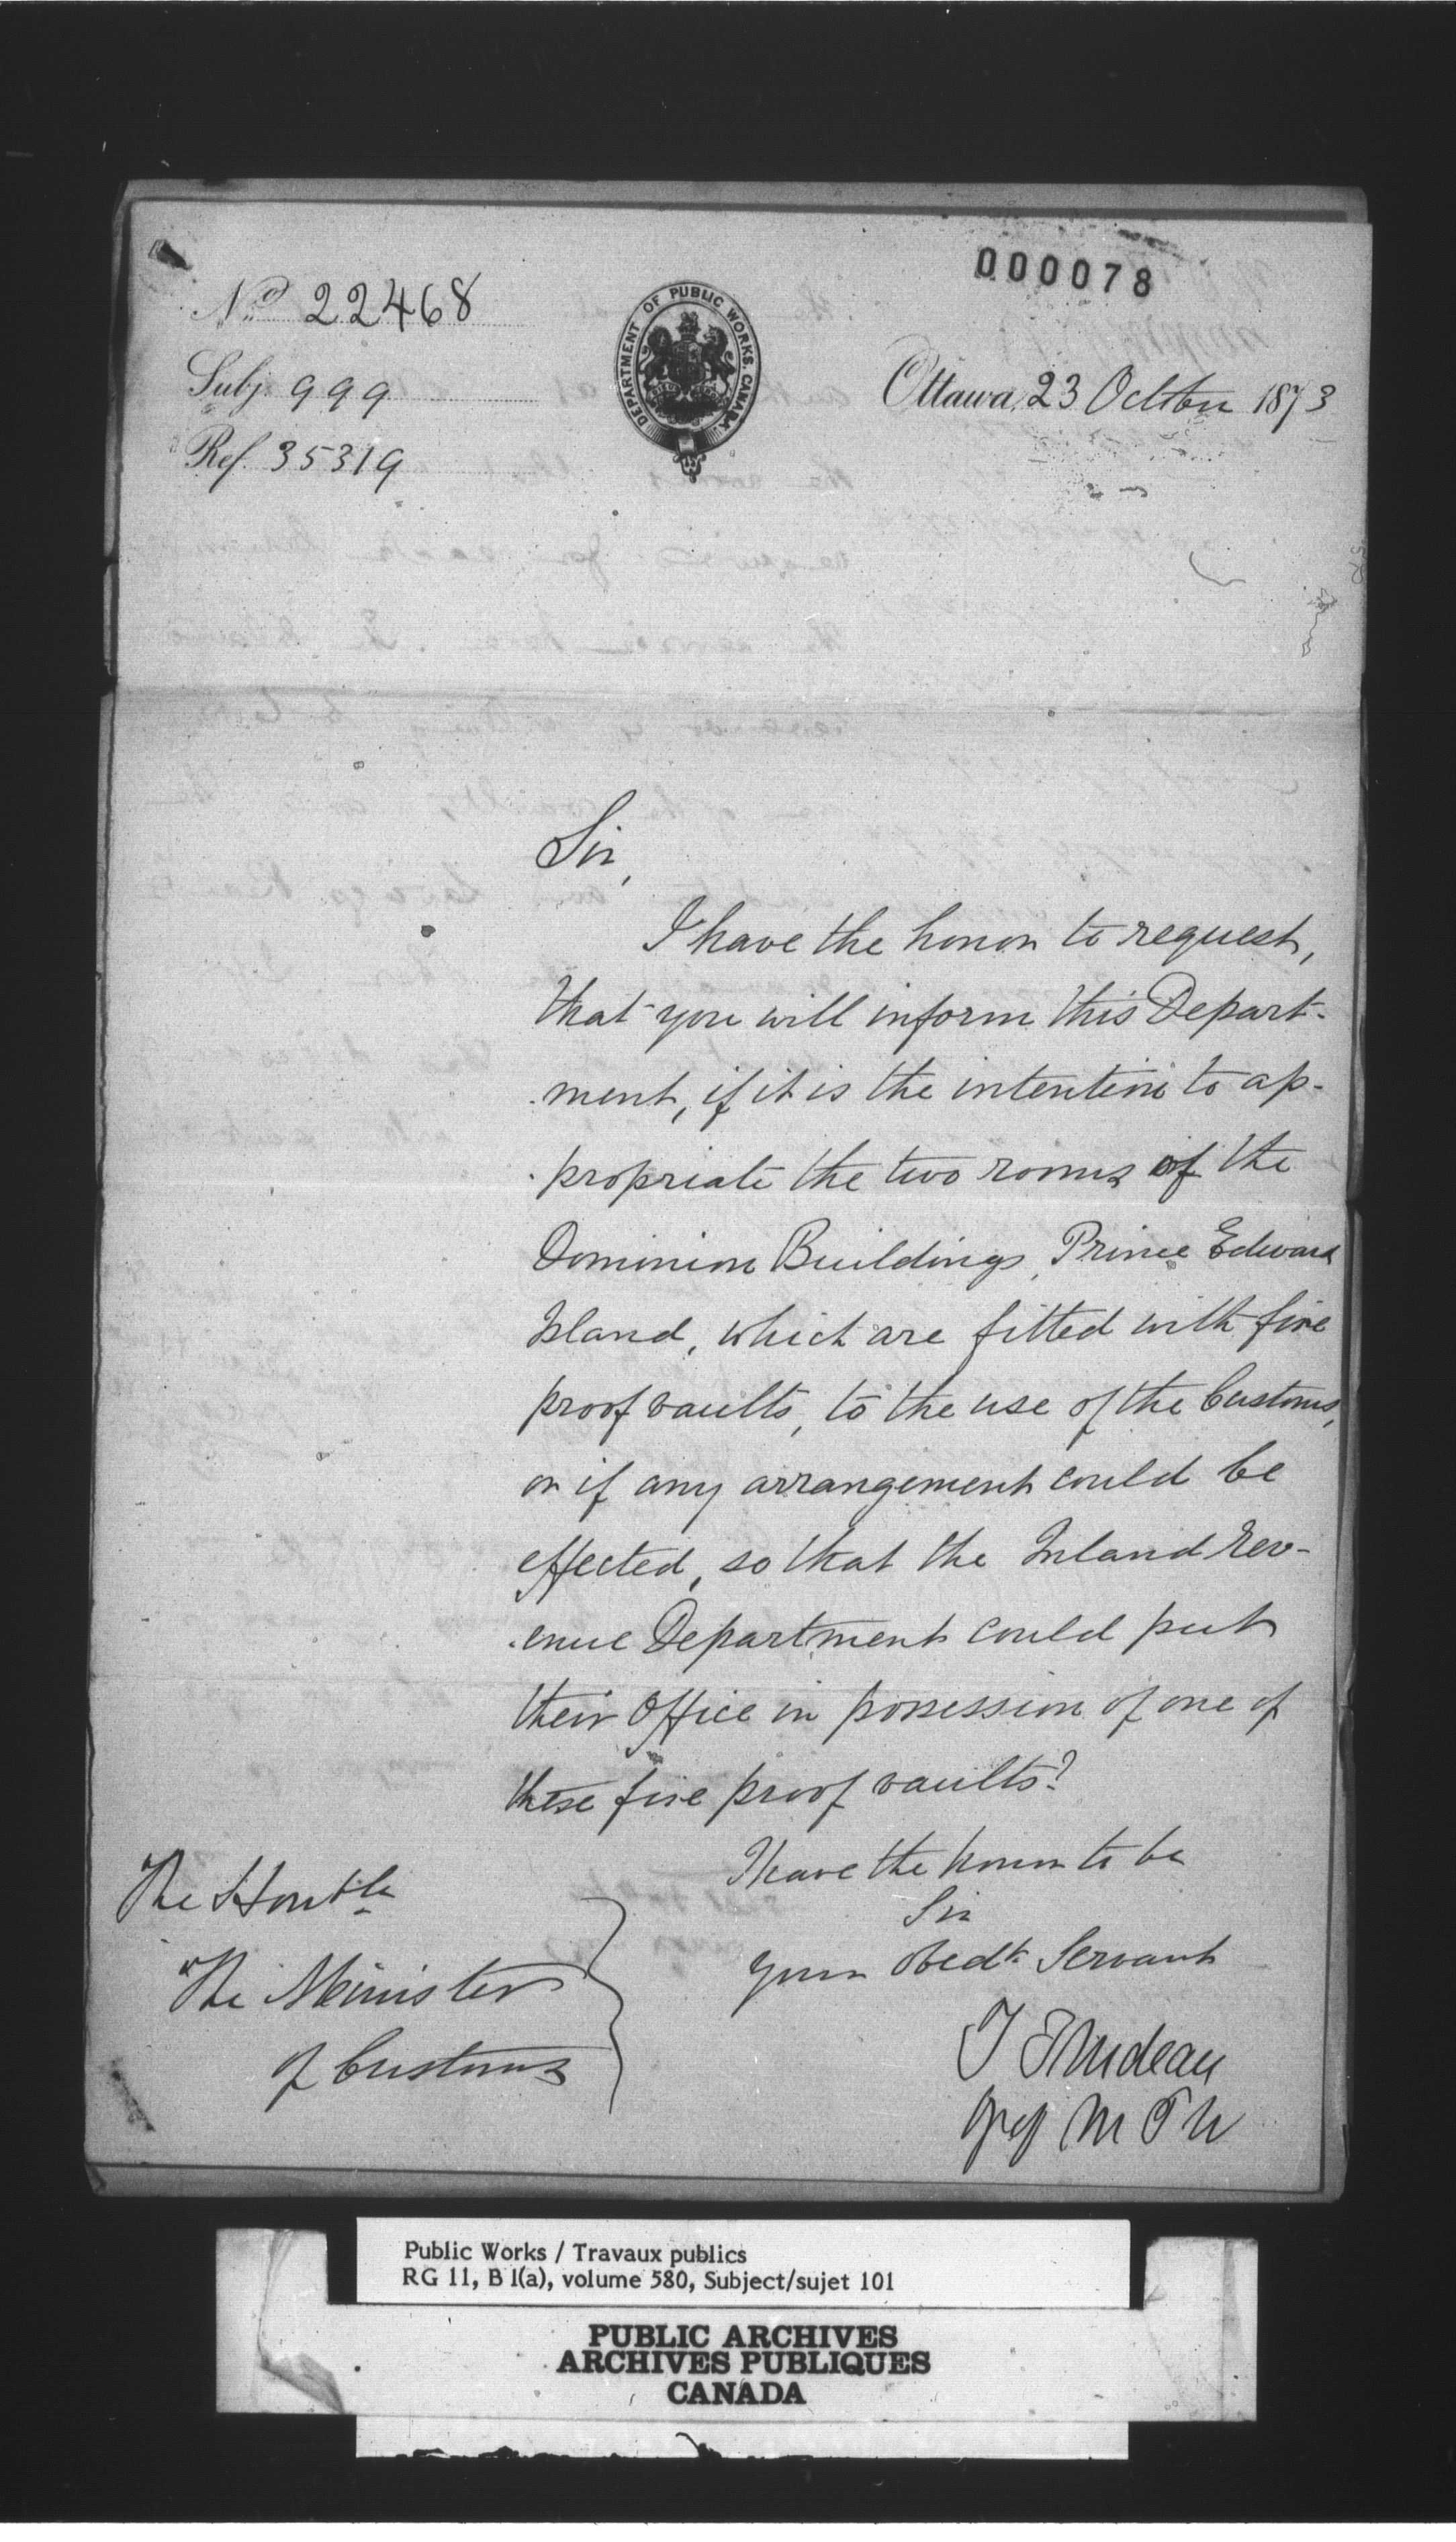 000078
No 22468
DEPARTMENT OF PUBLIC WORKS. CANADA
Subj. 999
Ottawa, 23 October 1873
Ref. 35319
Sir,
I have the honor to request,
that you will inform this Depart-
-ment, if it is the intention to ap-
-propriate the two rooms of the
Dominion Buildings, Prince Edward
Island, which are fitted with fire
proof vaults, to the use of the Customs,
or if any arrangement could be
effected, so that the Inland Rev-
-enue Department could put
their Office in possession of one of
these fire proof vaults?
I have the honor to be
Sir
Your Obedt Servant
T Trudeau
The Honble
The Minister
of Customs
Public Works / Travaux publics
RG 11, B 1(a), volume 580, Subject/sujet 101
PUBLIC ARCHIVES
ARCHIVES PUBLIQUES
CANADA